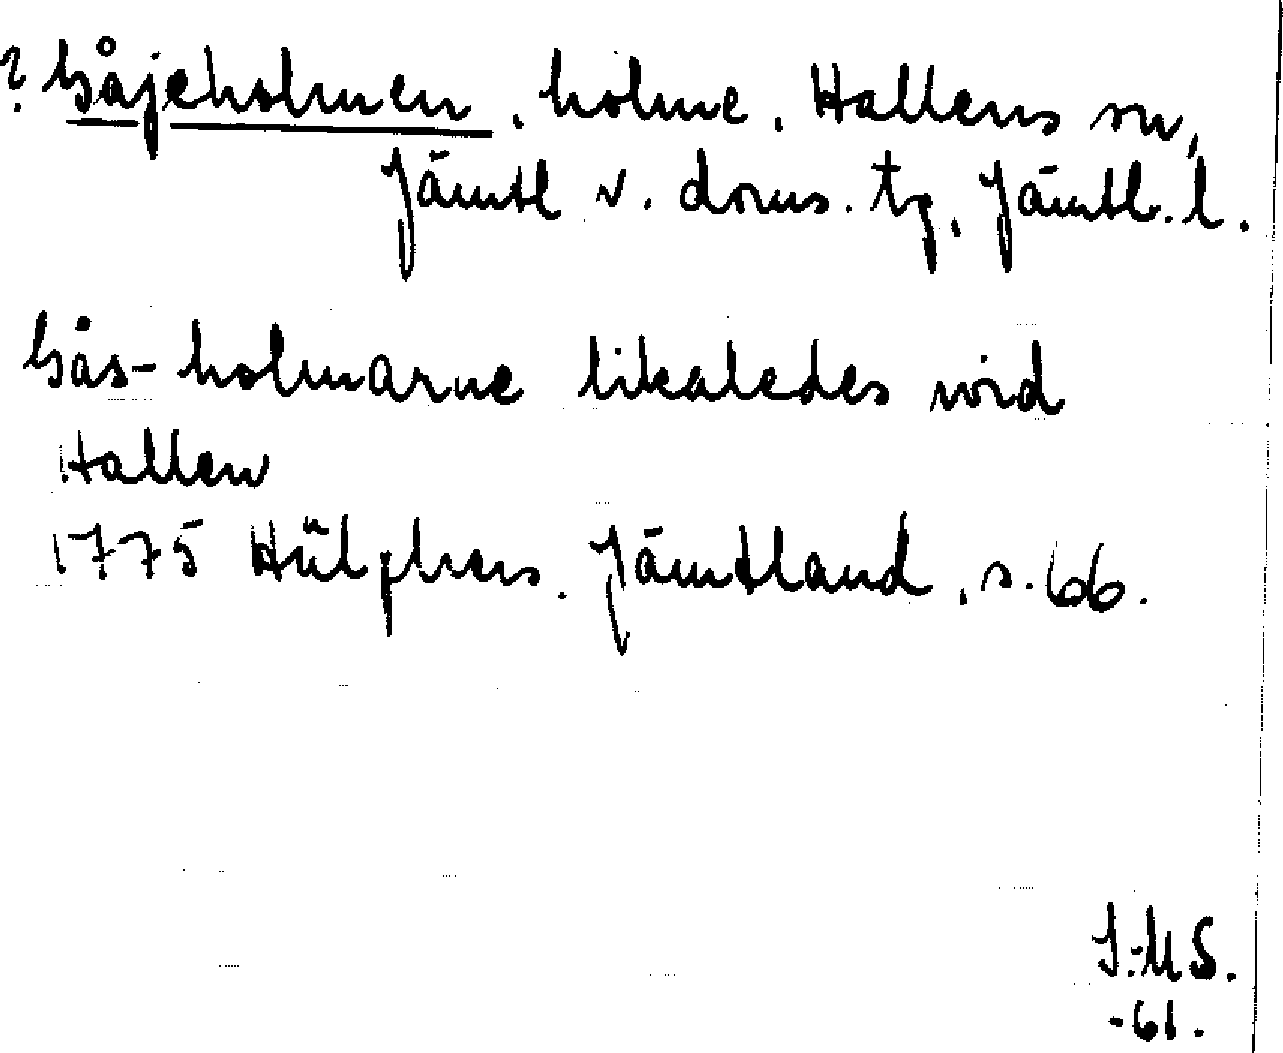 ? Gåjeholmen, holme, Hallens sn,
Jämtl v. doms. tg, Jämtl. l.
Gås-holmarne likaledes wid
Hallen
1775 Hülphers. Jämtland, s. 66.
I.-M S.
-61.